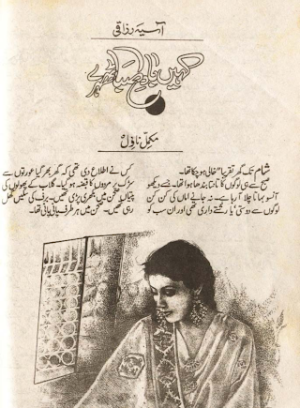 آسیہ رزاقی
کہیں باد صبا ٹھہرے
مکمل ناول
شام تک گھر تقریباً خالی ہو چکا تھا۔
صبح سے ہی لوگوں کا تانتا بندھا ہوا تھا۔ جسے دیکھو
آنسو بہاتا چلا آ رہا ہے۔ نہ جانے اماں کی کن کن
لوگوں سے دوستی یا رشتے داری تھی اور ان سب کو
کس نے اطلاع دی تھی کہ گھر بھر گیا عورتوں سے
سڑک پر مردوں کا قبضہ ہو گیا۔ گلاب کے پھولوں کی
پتیاں صحن میں بکھری پڑی تھیں۔ برف کی سلیں گھل
رہی تھیں۔ صحن میں ہر طرف پانی پانی تھا۔